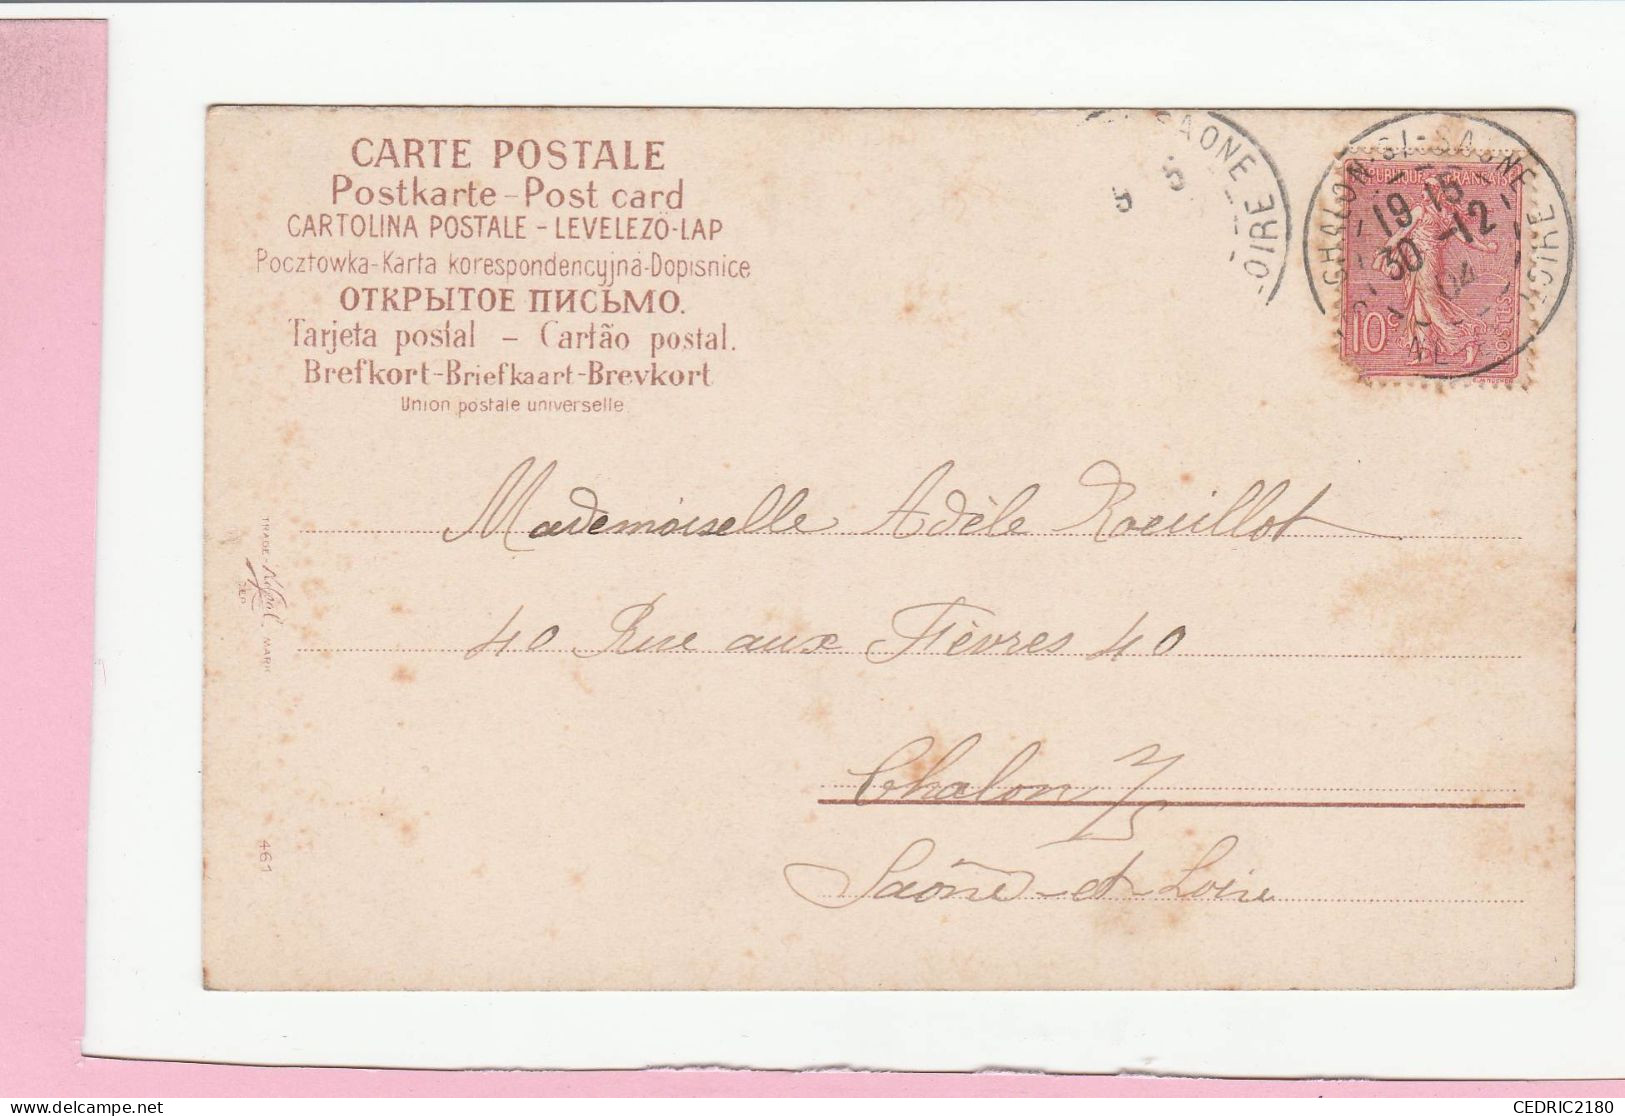 CARTE POSTALE
Postkarte - Post card
CARTOLINA POSTALE - LEVELEZÖ-LAP
Pocztowka-Karta korespondencyjna-Dopisnice
ОТКРЫТОЕ ПИСЬМО.
Tarjeta postal - Cartão postal.
Brefkort-Briefkaart-Brevkort
Union postale universelle
SAONE
OIRE
5 5
CHALON-S-SAONE
19 15
30 -12
04
REPUBLIQUE FRANÇAISE
10c
POSTES
Mademoiselle Adèle Rouillot
40 Rue aux Fèvres 40
Chalon s/
Saône-et-Loire
TRADE MARK
DEP
461
CEDRIC2180